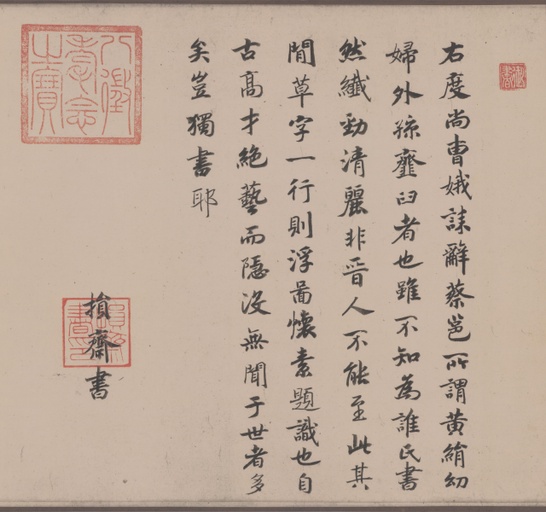 右度尚曹娥誄辭蔡邕所謂黃絹幼
婦外孫虀臼者也雖不知為誰氏書
然纖勁清麗非晉人不能至此其
間草字一行則浮啚懷素題識也自
古高才絕藝而隱沒無聞于世者多
矣豈獨書耶
損齋書
八徵
耄念
之寶